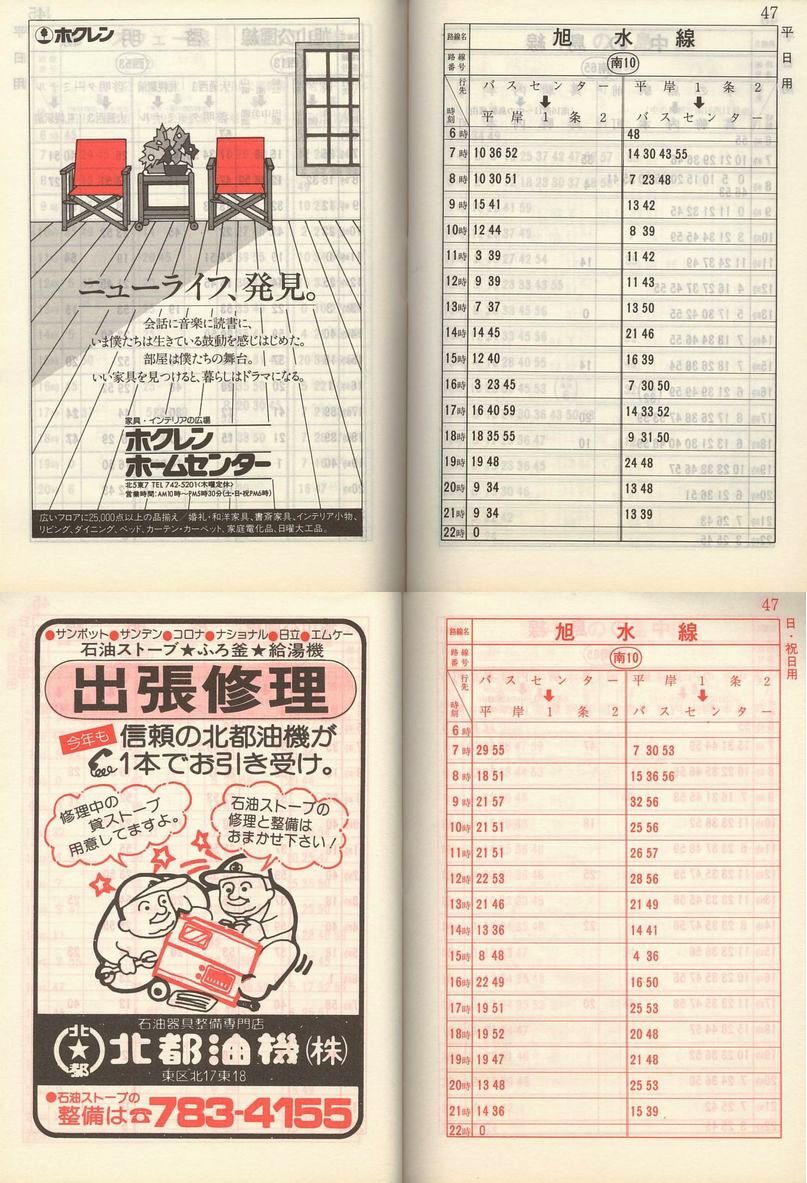 ホクレン
ニューライフ、発見。
会話に音楽に読書に、
いま僕たちは生きている鼓動を感じはじめた。
部屋は僕たちの舞台。
いい家具を見つけると、暮らしはドラマになる。
家具・インテリアの広場
ホクレン
ホームセンター
北5東7 TEL 742-5201<木曜定休>
営業時間:AM10時〜PM5時30分(土・日・祝PM6時)
広いフロアに25,000点以上の品揃え/婚礼・和洋家具、書斎家具、インテリア小物、
リビング、ダイニング、ベッド、カーテン・カーペット、家庭電化品、日曜大工品。
47
平日用
路線名 旭水線
路線番号 南10
行先 バスセンター 平岸1条2
時刻 平岸1条2 バスセンター
6時 48
7時 10 36 52 14 30 43 55
8時 10 30 51 7 23 48
9時 15 41 13 42
10時 12 44 8 39
11時 3 39 11 42
12時 9 39 11 43
13時 7 37 13 50
14時 14 45 21 46
15時 12 40 16 39
16時 3 23 45 7 30 50
17時 16 40 59 14 33 52
18時 18 35 55 9 31 50
19時 19 48 24 48
20時 9 34 13 48
21時 9 34 13 39
22時 0
●サンポット●サンデン●コロナ●ナショナル●日立●エムケー
石油ストーブ★ふろ釜★給湯機
出張修理
今年も 信頼の北都油機が
1本でお引き受け。
修理中の
貸ストーブ
用意してますよ。
石油ストーブの
修理と整備は
おまかせ下さい!
石油器具整備専門店
北★都 北都油機(株)
東区北17東18
●石油ストーブの
整備は☎783-4155
47
日・祝日用
路線名 旭水線
路線番号 南10
行先 バスセンター 平岸1条2
時刻 平岸1条2 バスセンター
6時
7時 29 55 7 30 53
8時 18 51 15 36 56
9時 21 57 32 56
10時 21 51 25 56
11時 21 51 26 57
12時 22 53 28 56
13時 21 46 21 49
14時 13 36 14 41
15時 8 48 4 36
16時 22 49 16 50
17時 19 51 25 53
18時 19 52 20 48
19時 19 47 21 48
20時 13 48 25 53
21時 14 36 15 39
22時 0